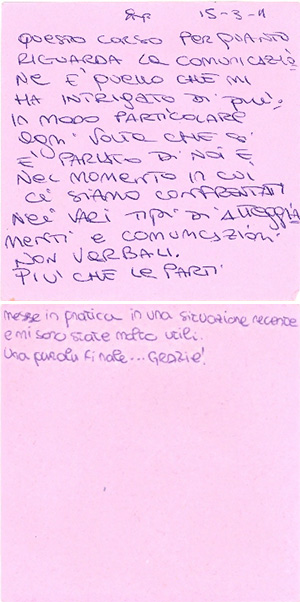 15-3-11
QUESTO CORSO PER QUANTO
RIGUARDA LA COMUNICAZIO
NE E' QUELLO CHE MI
HA INTRIGATO DI PIU'.
IN MODO PARTICOLARE
OGNI VOLTA CHE SI
E' PARLATO DI NOI E
NEL MOMENTO IN CUI
CI SIAMO CONFRONTATI
NEI VARI TIPI DI ATTEGGIA
MENTI E COMUNICAZIONI
NON VERBALI.
PIU' CHE LE PARTI
messe in pratica in una situazione recente
e mi sono state molto utili.
Una parola finale... GRAZIE!